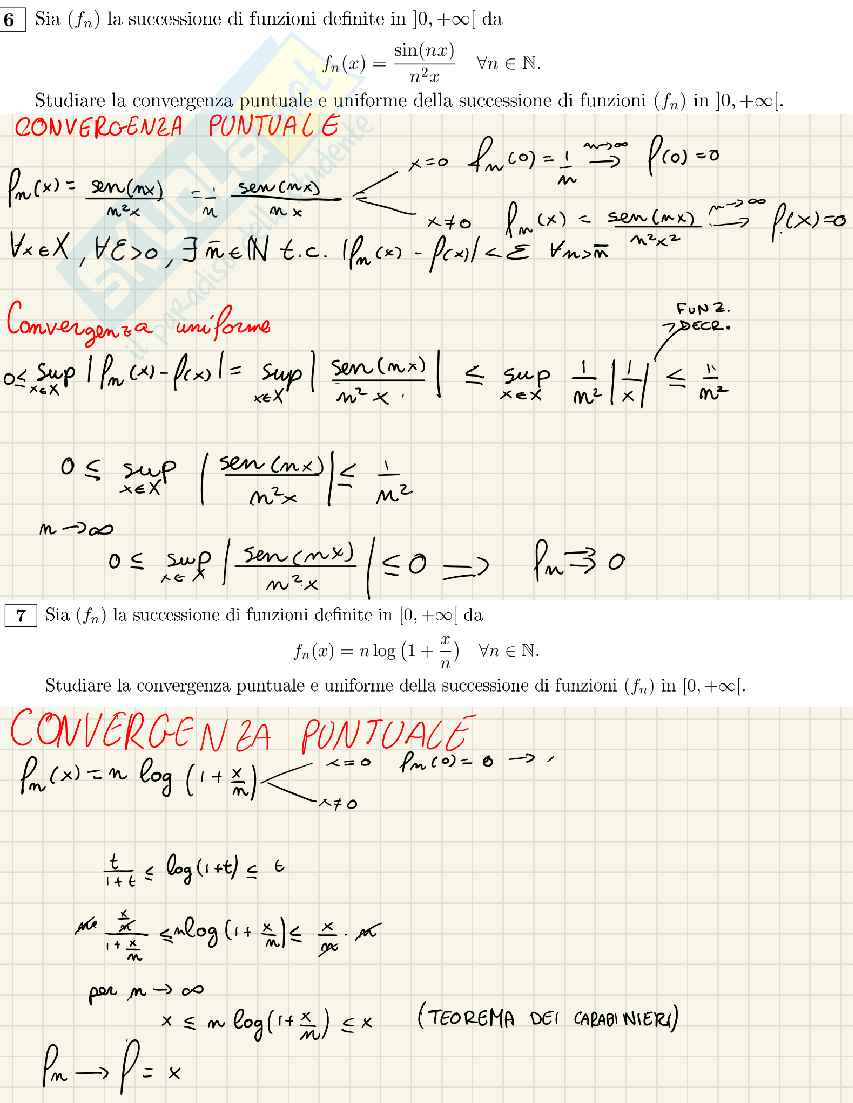 6 Sia (fₙ) la successione di funzioni definite in ]0, +∞[ da
fₙ(x) = sin(nx) / n²x ∀n ∈ ℕ.
Studiare la convergenza puntuale e uniforme della successione di funzioni (fₙ) in ]0, +∞[.
CONVERGENZA PUNTUALE
fₙ(x) = sen(nx) / n²x = 1/n sen(nx) / nx
x=0 fₙ(0) = 1/n →(n→∞) f(0)=0
x≠0 fₙ(x) < sen(nx) / n²x² →(n→∞) f(x)=0
∀x∈X, ∀ε>0, ∃ n̄∈ℕ t.c. |fₙ(x) - f(x)| < ε ∀n>n̄
Convergenza uniforme
FUNZ. DECR.
0 ≤ sup x∈X |fₙ(x) - f(x)| = sup x∈X |sen(nx) / n²x| ≤ sup x∈X 1/n² |1/x| ≤ 1/n²
0 ≤ sup x∈X |sen(nx) / n²x| ≤ 1/n²
n→∞
0 ≤ sup x∈X |sen(nx) / n²x| ≤ 0 ⟹ fₙ ⇉ 0
7 Sia (fₙ) la successione di funzioni definite in [0, +∞[ da
fₙ(x) = n log (1 + x/n) ∀n ∈ ℕ.
Studiare la convergenza puntuale e uniforme della successione di funzioni (fₙ) in [0, +∞[.
CONVERGENZA PUNTUALE
fₙ(x) = n log (1 + x/n)
x=0 fₙ(0) = 0 →
x≠0
t/(1+t) ≤ log(1+t) ≤ t
n (x/n)/(1 + x/n) ≤ n log(1 + x/n) ≤ x/n · n
per n→∞
x ≤ n log(1 + x/n) ≤ x (TEOREMA DEI CARABINIERI)
fₙ → f = x
SKUOLA.net
il paradiso dello studente